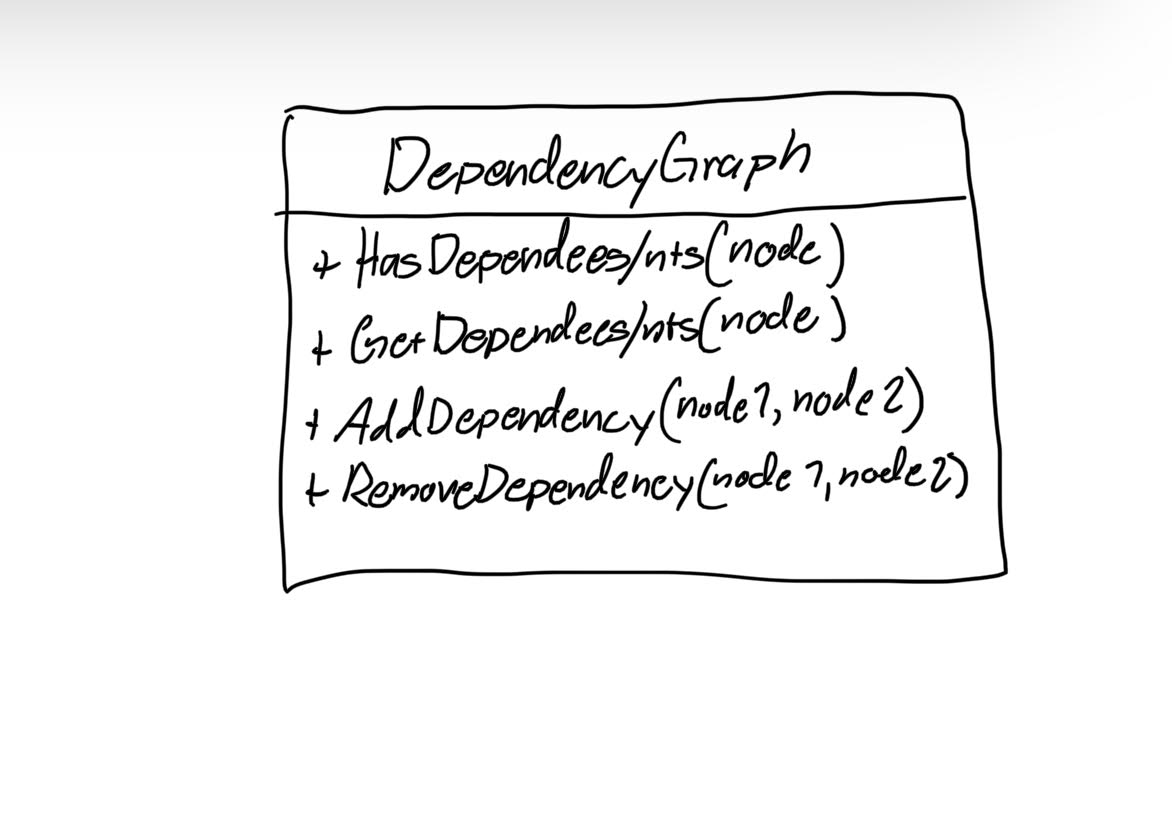 DependencyGraph
+ HasDependees/nts(node)
+ GetDependees/nts(node)
+ AddDependency(node1, node2)
+ RemoveDependency(node1, node2)